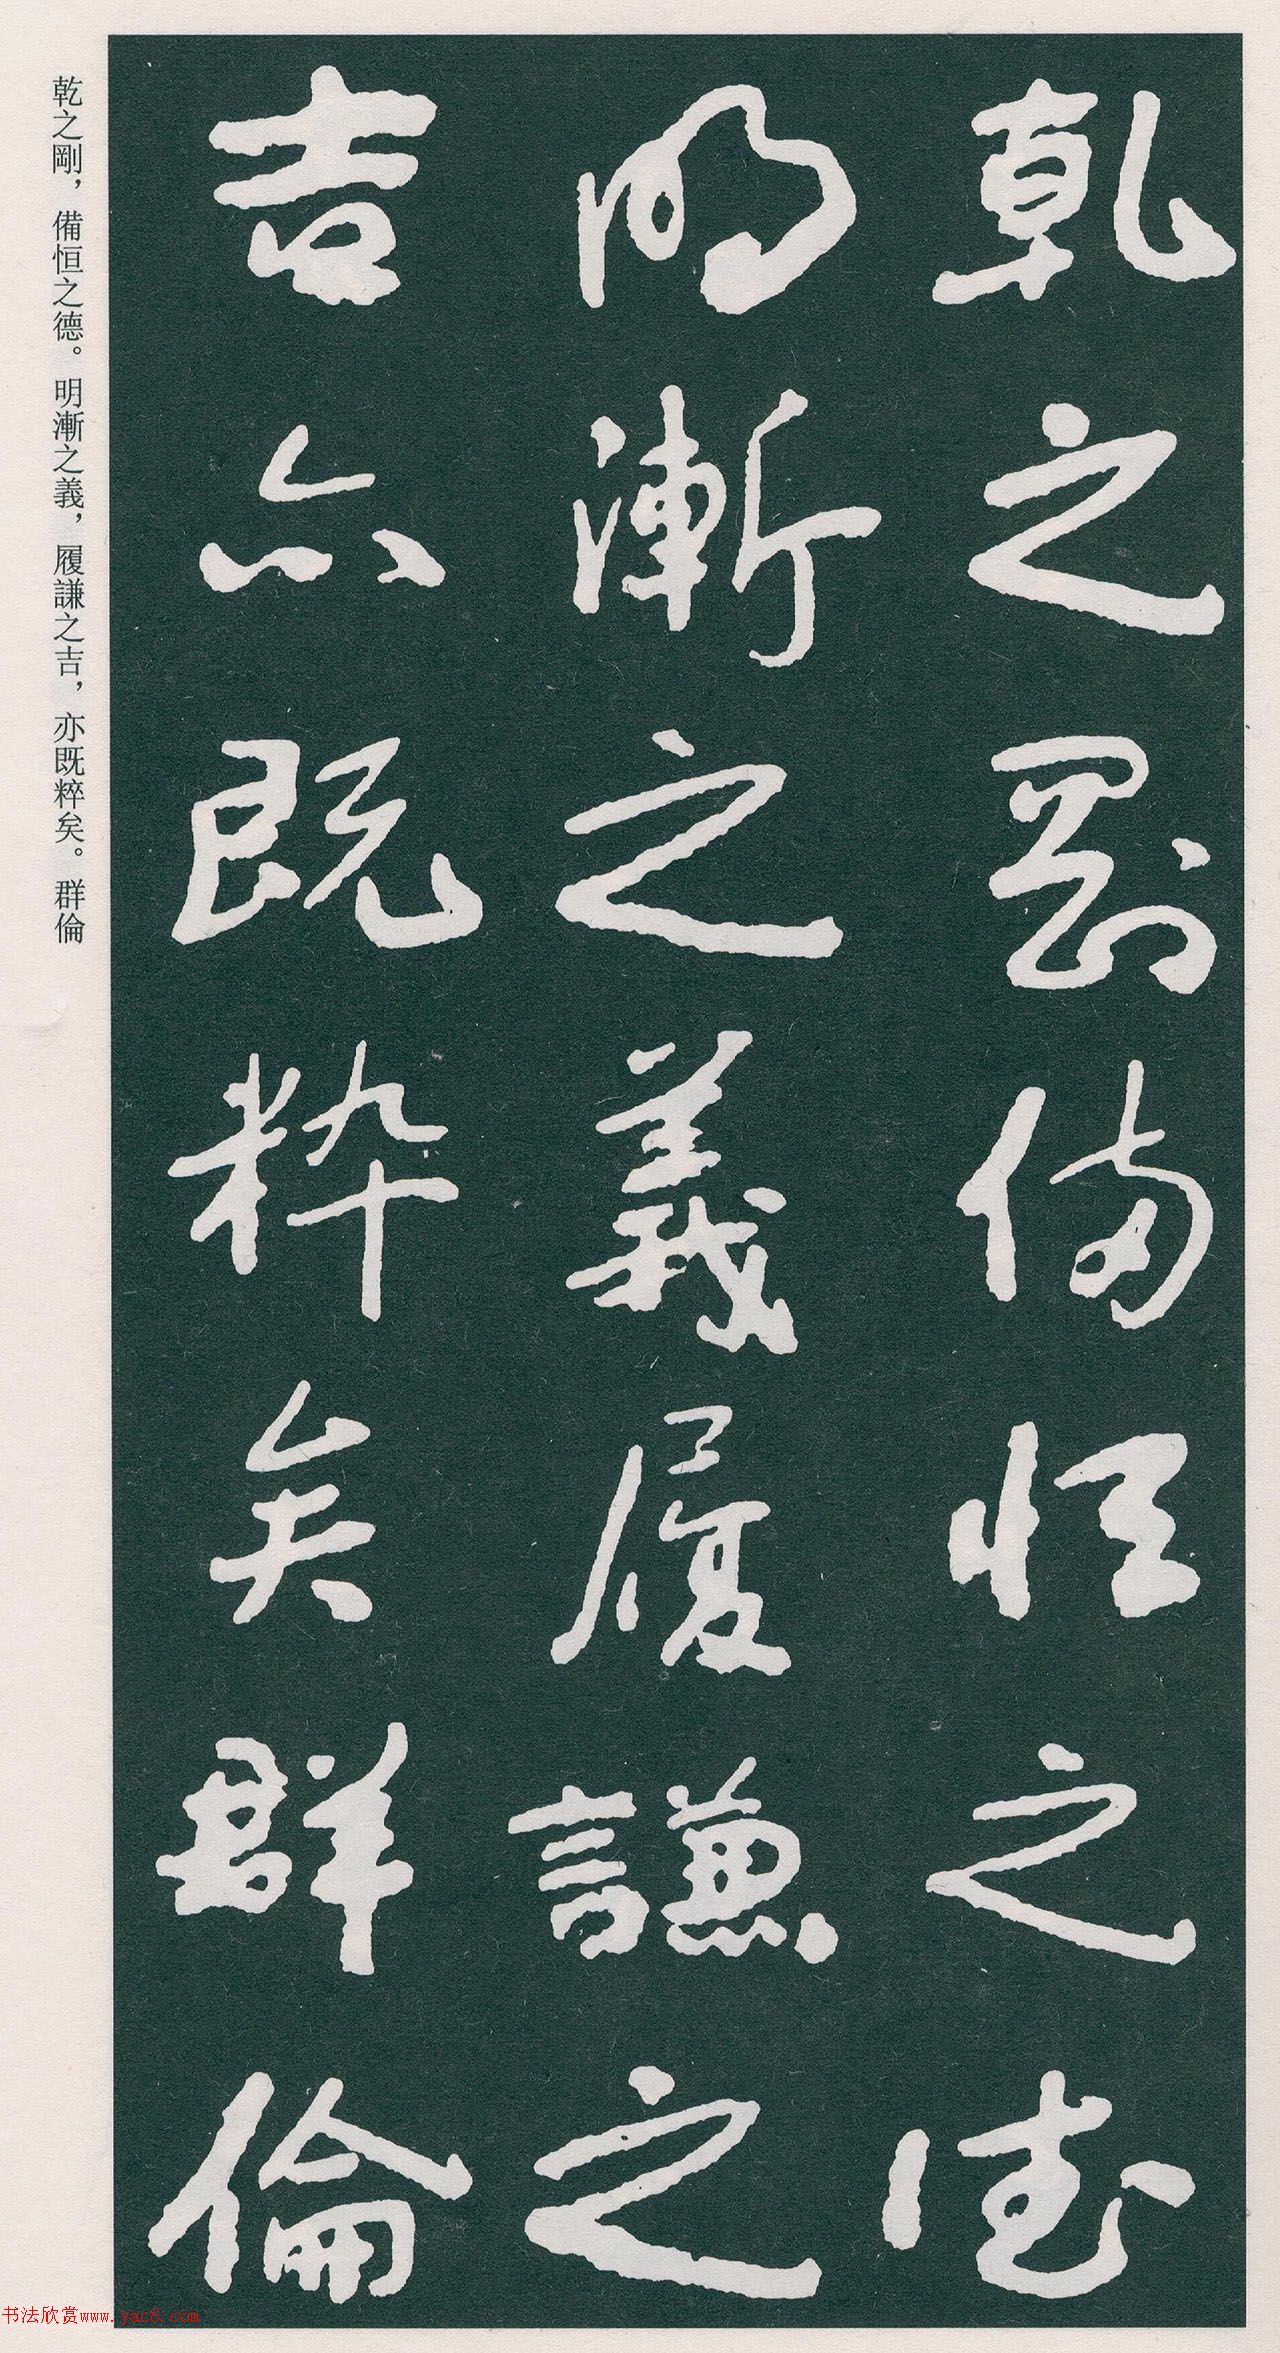 乾之剛備恒之德
明漸之義履謙之
吉亦既粹矣群倫
乾之剛，備恒之德。明漸之義，履謙之吉，亦既粹矣。群倫
书法欣赏www.yac8.com